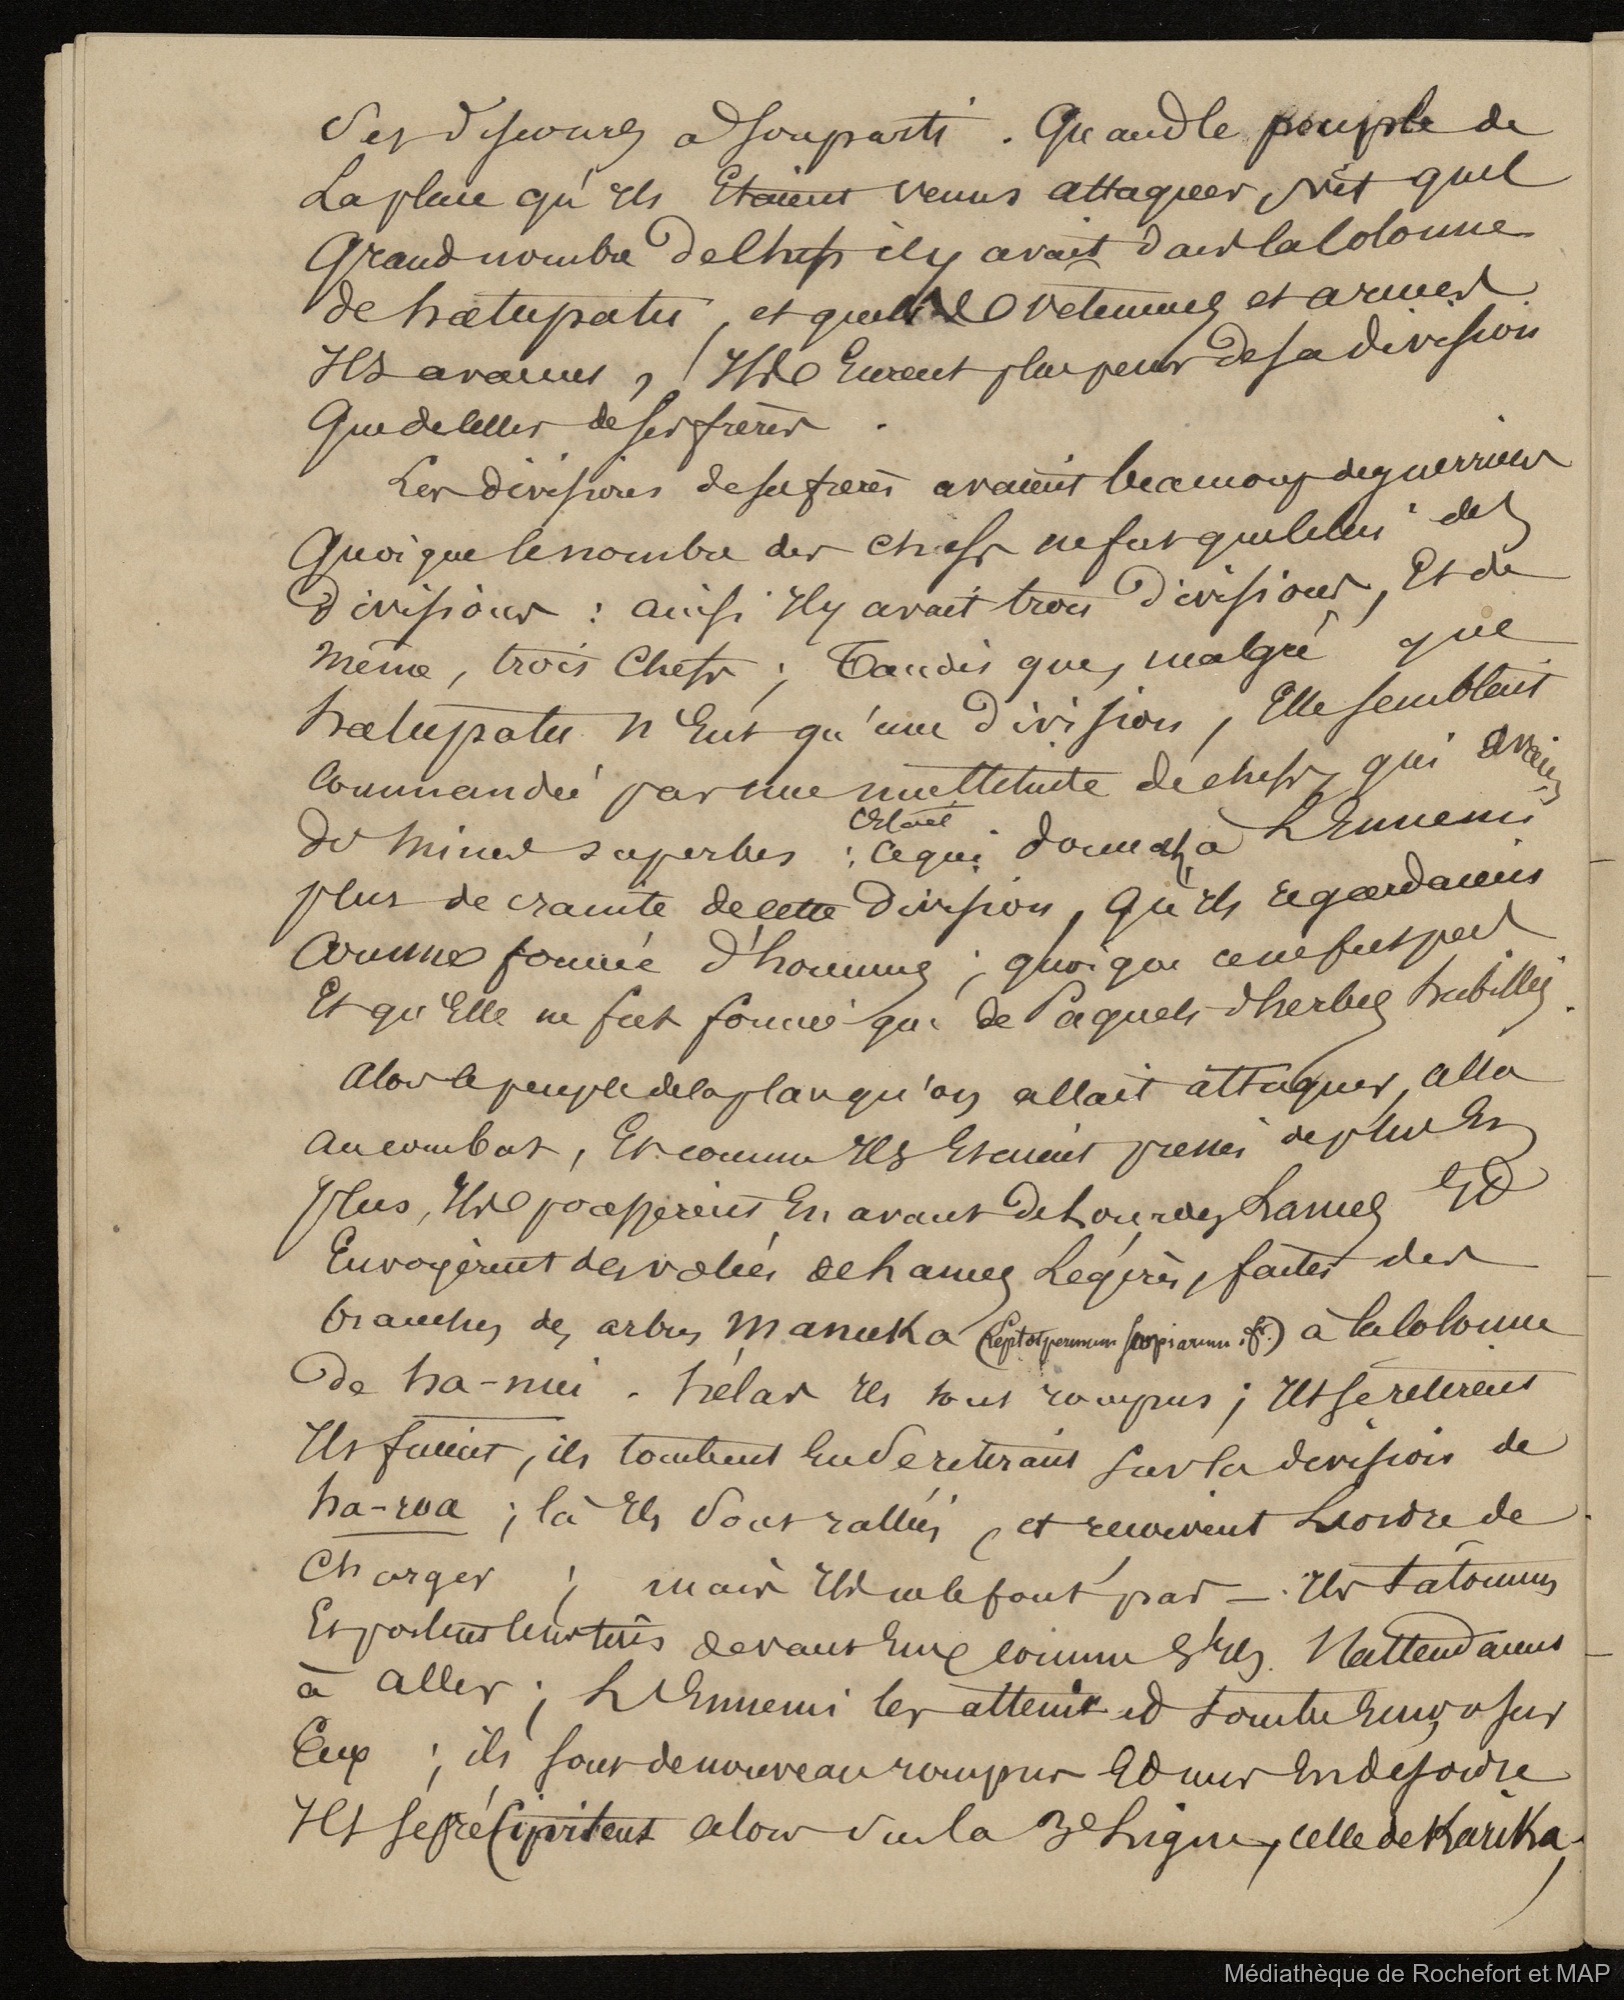 Ses discours à son parti. Quand le peuple de
La place qu'ils Etaient venus attaquer, vit quel
Grand nombre de Chefs il y avait dans la Colonne
de hatupatu, et quels vetements et armes
Ils avaient, Ils Eurent plus peur de sa division
Que de celles de ses frères.
Les divisions de ses frères avaient beaucoup de guerriers
Quoique le nombre des chefs ne fut que celui des
divisions : ainsi Il y avait trois divisions, Et de
même, trois Chefs ; Tandis que, malgré que
hatupatu n'Eut qu'une division, Elle semblait
Commandée par une multitude de chefs, qui avaient
des mines superbes : C'était ce qui donnait à L'Ennemi
plus de crainte de cette division, Qu'ils regardaient
comme formée d'hommes ; quoique ce ne fut pas
Et qu'Elle ne fut formée que de Paquets d'herbes habillés.
Alors le peuple de la place qu'on allait attaquer, alla
au combat, Et comme Ils Etaient pressés de plus En
plus, Ils passèrent En avant de Lourdes Lances Et
Envoyèrent des volées de Lances Légères, faites des
branches des arbres Manuka (Leptospermum scoparium. f.) à la Colonne
De ha-nui. hélas Ils sont rompus ; Ils se retirent
Ils fuient, ils tombent En se retirant sur la division de
ha-roa ; là Ils sont ralliés, et recoivent L'ordre de
Charger ; mais Ils ne le font pas — Ils tatonnent
Et portent leurs têtes devant Eux comme s'Ils s'attendaient
à aller ; L'Ennemi les atteint et tombe sur
Eux ; ils sont de nouveau rompus Et mis En desordre
Ils se précipitent alors sur la 3e Ligne, celle de Karika,
Médiathèque de Rochefort et MAP